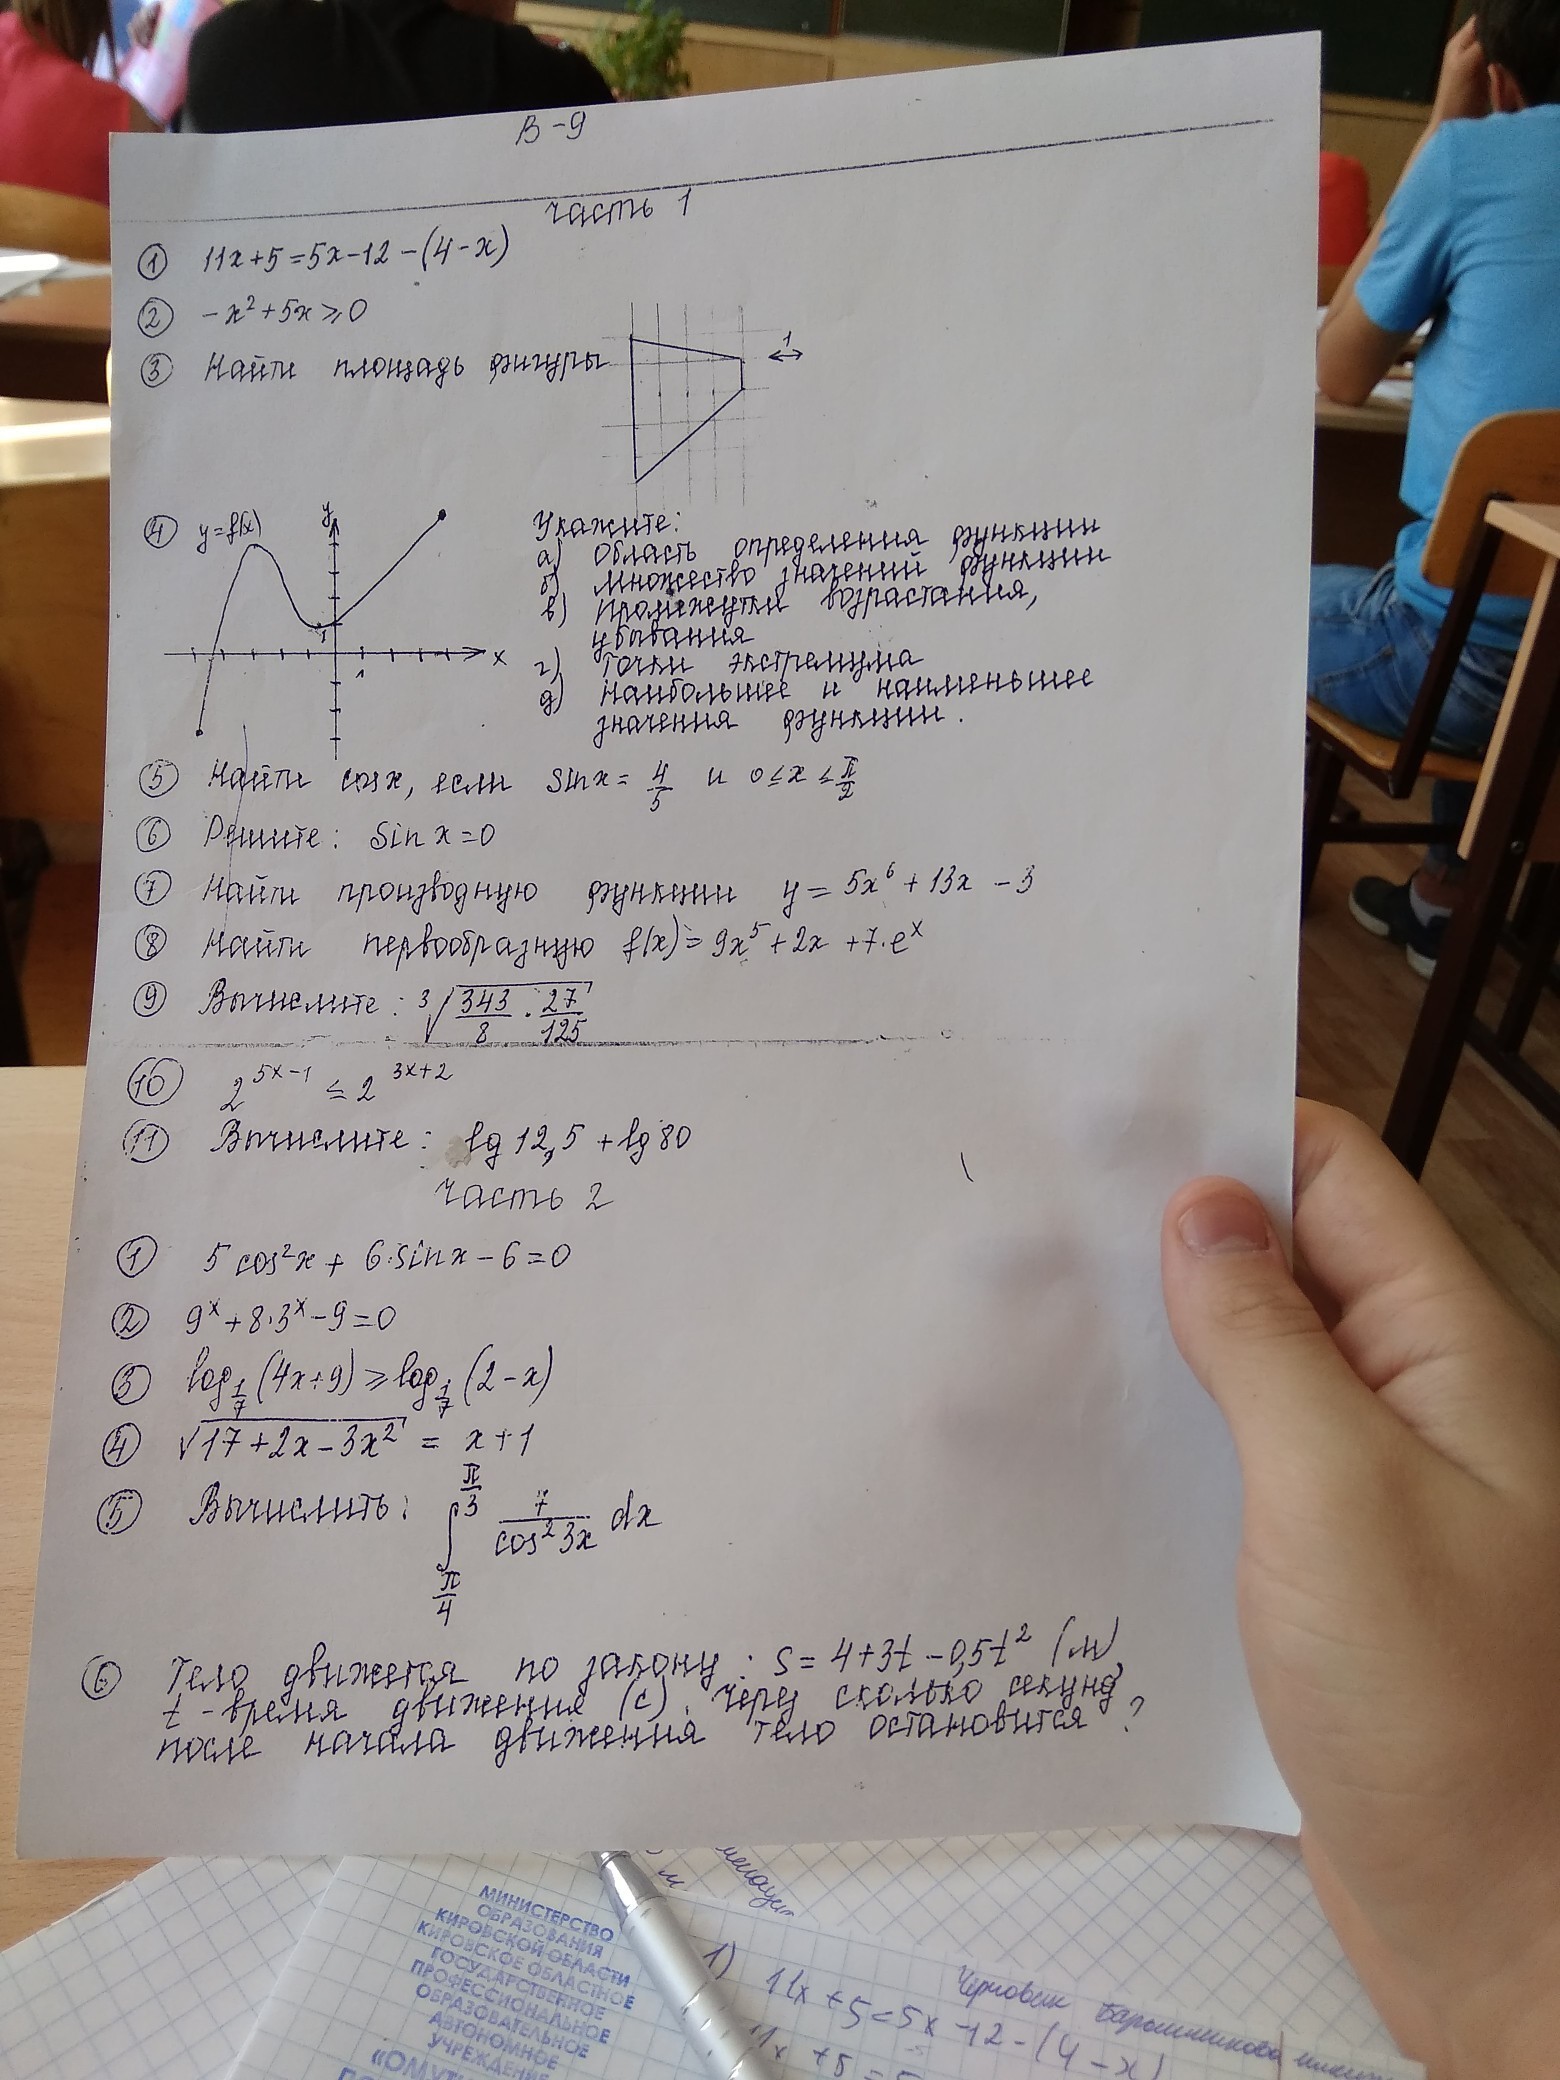 В-9
часть 1
① 11x+5=5x-12-(4-x)
② -x²+5x≥0
③ Найти площадь фигуры
1
④ y=f(x)
y
1
1
x
Укажите:
а) область определения функции
б) множество значений функции
в) промежутки возрастания,
убывания
г) точки экстремума
д) наибольшее и наименьшее
значения функции.
⑤ Найти cosx, если sinx=4/5 и 0≤x≤π/2
⑥ Решите: sin x=0
⑦ Найти производную функции y=5x⁶+13x-3
⑧ Найти первообразную f(x)=9x⁵+2x+7·eˣ
⑨ Вычислите: ³√(343/8·27/125)
⑩ 2^(5x-1) ≤ 2^(3x+2)
⑪ Вычислите: lg 12,5+lg 80
часть 2
① 5cos²x+6·sinx-6=0
② 9ˣ+8·3ˣ-9=0
③ log_(1/7)(4x+9)≥log_(1/7)(2-x)
④ √(17+2x-3x²) = x+1
⑤ Вычислить: ∫_(π/4)^(π/3) 7/(cos²3x) dx
⑥ Тело движется по закону: S=4+3t-0,5t² (м),
t-время движения (с). Через сколько секунд
после начала движения тело остановится?
МИНИСТЕРСТВО
ОБРАЗОВАНИЯ
КИРОВСКОЙ ОБЛАСТИ
КИРОВСКОЕ ОБЛАСТНОЕ
ГОСУДАРСТВЕННОЕ
ПРОФЕССИОНАЛЬНОЕ
ОБРАЗОВАТЕЛЬНОЕ
АВТОНОМНОЕ
УЧРЕЖДЕНИЕ
Черновик
1) 11x+5=5x-12-(4-x)
11x+5=5